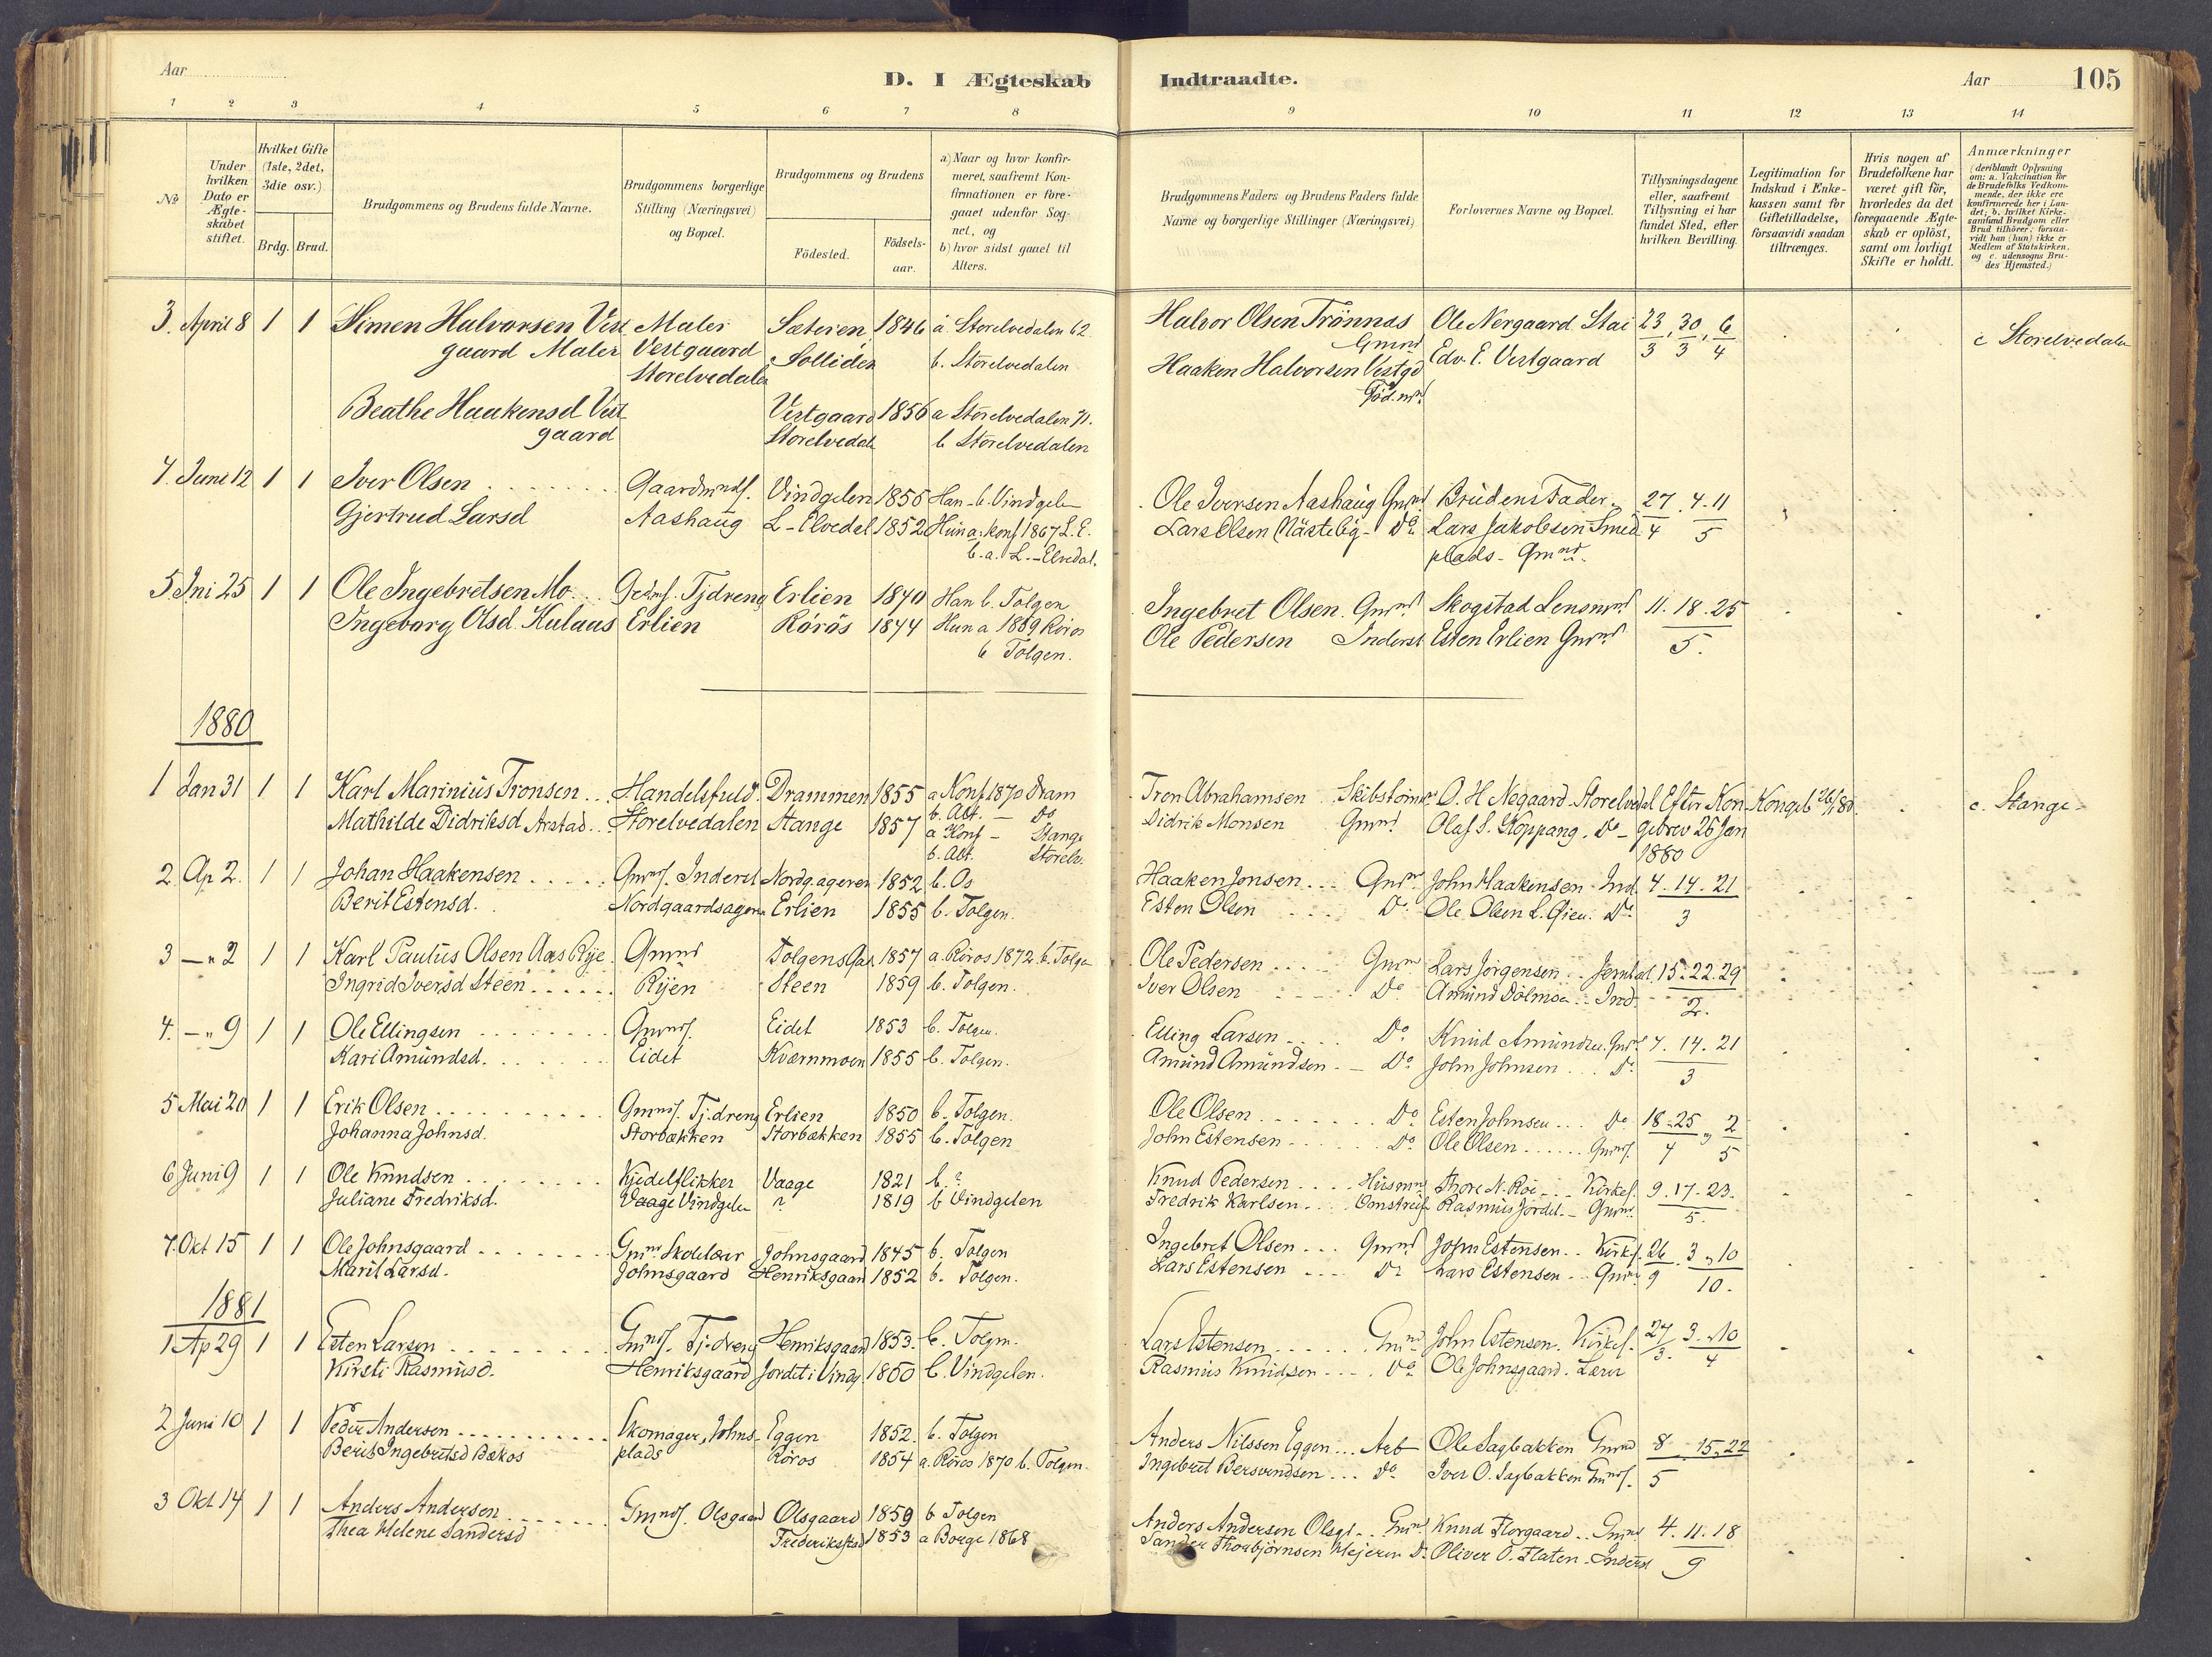 Aar
D. I Ægteskab
Indtraadte.
Aar
105
1 2 3 4 5 6 7 8 9 10 11 12 13 14
No
Under hvilken Dato er Ægteskabet stiftet.
Hvilket Gifte (1ste, 2det, 3die osv.)
Brdg. Brud.
Brudgommens og Brudens fulde Navne.
Brudgommens borgerlige Stilling (Næringsvei) og Bopæl.
Brudgommens og Brudens
Födested.
Födsels-aar.
a) Naar og hvor konfirmeret, saafremt Konfirmationen er foregaaet udenfor Sognet, og
b) hvor sidst gaaet til Alters.
Brudgommens Faders og Brudens Faders fulde Navne og borgerlige Stillinger (Næringsvei)
Forlovernes Navne og Bopæl.
Tillysningsdagene eller, saafremt Tillysning ei har fundet Sted, efter hvilken Bevilling.
Legitimation for Indskud i Enkekassen samt for Giftetilladelse, forsaavidt saadan tiltrænges.
Hvis nogen af Brudefolkene har været gift för, hvorledes da det foregaaende Ægteskab er oplöst, samt om lovligt Skifte er holdt.
Anmærkninger (deriblandt Oplysning om: a. Vakcination for de Brudefolks Vedkommende, der ikke ere konfirmerede her i Landet; b. hvilket Kirkesamfund Brudgom eller Brud tilhörer, forsaavidt han (hun) ikke er Medlem af Statskirken, og c. udensogns Brudes Hjemsted.)
3. April 8 1 1 Simen Halvorsen Vest Maler Sæteren, 1846 a. Storelvedalen 62 Halvor Olsen Trönnæs Ole Nergaard Stai 23/3, 30/3, 6/4 c Storelvedalen
gaard Maler Vestgaard Solliden b. Storelvedalen Gmnd Edv. E. Vestgaard
Storelvedalen Haaken Halvorsen Vestgd
Beathe Haakensd Vest Vestgaard 1856 a Storelvedalen 71.
gaard Storelvedal b Storelvedalen
4. Juni 12 1 1 Iver Olsen Gaardmnds. Vindgelen 1856 Han b. Vindgelen Ole Iversen Aashaug Gmnd Brudens Fader 27/4 . 4 . 11/5
Gjertrud Larsd Aashaug L-Elvedal 1852 Hun a. konf 1867 L. E. Lars Olsen Do. Lars Jakobsen Smed
b. a. L.-Elvedal. plads - Gmnd.
5. Juni 25 1 1 Ole Ingebretsen Mo Tjdreng Erlien 1840 Han b. Tolgen Ingebret Olsen. Gmnd Skogstad Lensmnd 11. 18. 25
Ingeborg Olsd. Kulaas Erlien Rörös 1844 Hun a 1859 Röros Ole Pedersen Inderst Esten Erlien Gmnd 5.
b Tolgen.
1880
1 Jan 31 1 1 Karl Marinius Tronsen Handelsfuld. Drammen 1855 a Konf. 1870 Dram Tron Abrahamsen O. H. Negaard Storelvedal Efter Kon Kongeb. 26/1 80. c. Stange
Mathilde Didriksd Arstad Storelvedalen Stange 1857 b. Alt. - Do Didrik Monsen Gmnd. Olaf S. Koppang. Do - gebrev 26 Jan
a Konf - Stange 1880
b. Alt. Storelv.
2. Ap 2. 1 1 Johan Haakensen Gmnds. Inderst Nordg.ageren 1852 b. Os Haaken Jonsen Gmnd John Haakensen Ind. 7. 14. 21
Berit Estensd. Nordgaardsageren Erlien 1855 b. Tolgen. Esten Olsen Do. Ole Olsen L. Gien. Do. 3
3 — " 2 1 1 Karl Paulus Olsen Aas Rye Gmnd Tolgens Gas 1857 a. Röros 1872. b. Tolgen Ole Pedersen Gmnd Lars Jörgensen 15. 22. 29
Ingrid Iversd Steen Ryen Steen 1859 b. Tolgen. Iver Olsen Do Amund Dölmoe Ind. 2.
4. — " 9 1 1 Ole Ellingsen Gmnds. Eidet 1853 b. Tolgen. Elling Larsen Do Knud Amundsen. Gmd 7. 14. 21
Kari Amundsd. Eidet Kværnmoen 1855 b. Tolgen. Amund Amundsen Do. John Johnsen Do. 3
5 Mai 20 1 1 Erik Olsen Gmnds. Tj.dreng Erlien 1850 b. Tolgen. Ole Olsen Do. Esten Johnsen Do 18 . 25/4 " 2/5
Johanna Johnsd. Storbækken Storbækken 1855 b. Tolgen John Estensen Do. Ole Olsen Gmnds.
6 Juni 9 1 1 Ole Knudsen Kjedelflikker Vaage 1821 b. ? Knud Pedersen Husmnd Thore N. Röe Kirkes. 9. 17. 23.
Juliane Fredriksd. Vaage Vindgelen ? 1819 b Vindgelen Fredrik Karlsen Omstreif. Rasmus Jordet. Gmnd 5.
7. Okt 15 1 1 Ole Johnsgaard Gmnd Skolelær Johnsgaard 1845 b. Tolgen Ingebret Olsen Gmnd John Estensen Kirks. 26/9 . 3 " 10/10.
Marit Larsd. Johnsgaard Henriksgaard 1852 b. Tolgen. Lars Estensen Do Lars Estensen Gmnd
1881
1 Ap 29 1 1 Esten Larsen Gmnds. Tj.dreng Henriksgaard 1853. b. Tolgen. Lars Estensen Gmnd John Estensen. Kirkes. 27/3. 3 . 10/4
Kirsti Rasmusd. Henriksgaard Jordet i Vindg. 1860 b. Vindgelen. Rasmus Knudsen Do Ole Johnsgaard. Lærer
2 Juni 10 1 1 Peder Andersen Skomager, Johns- Eggen 1852. b. Tolgen Anders Nilssen Eggen Arb Ole Sagbakken Gmnd 8 15. 22
Berit Ingebritsd Bækos plads Röros 1854 a. Röros 1870 b. Tolgen. Ingebret Bersvendsen Do Iver O. Sagbakken Gmnds. 5
3 Okt 14 1 1 Anders Andersen Gmnds. Olsgaard Olsgaard 1859 b Tolgen Anders Andersen Olsgd. Gmnd Knud Florgaard Gmnd 4. 11. 18
Thea Helene Sandersd Frederikstad 1853 a Borge 1868 Sander Thorbjörnsen Mejerer Do. Oliver O. Flaten. Inderst 9